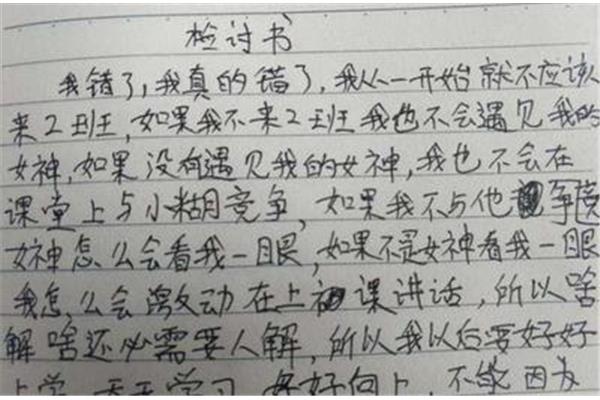 检讨书
我错了，我真的错了，我从一开始就不应该
来2班，如果我不来2班我也不会遇见我的
女神，如果没有遇见我的女神，我也不会在
课堂上与小糊竞争，如果我不与他争
女神怎么会看我一眼，如果不是女神看我一眼
我怎么会激动在上课讲话，所以啥
解啥还必需要人解，所以我以后要好好
上学，天天学习，好好向上，不能因为